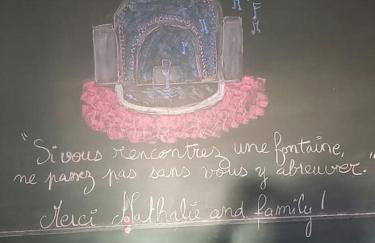 "Si vous rencontrez une fontaine,
ne passez pas sans vous y abreuver."
Merci Nathalie and family!